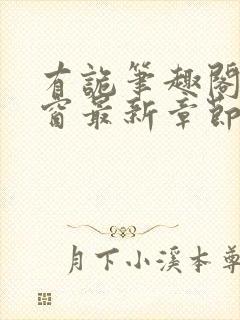 有詭筆趣閣
窗最新章節
月下小溪本尊